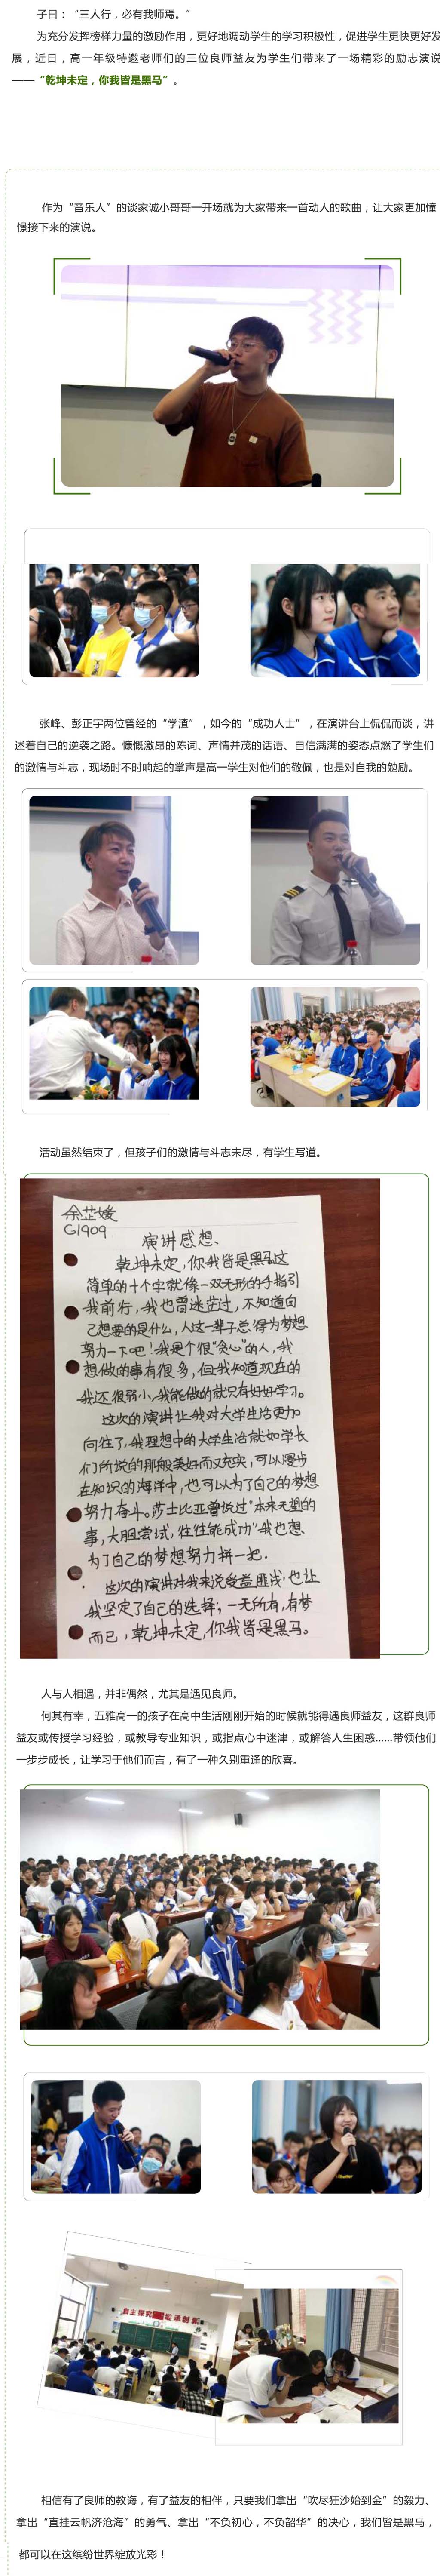 子曰：“三人行，必有我师焉。”
为充分发挥榜样力量的激励作用，更好地调动学生的学习积极性，促进学生更快更好发
展，近日，高一年级特邀老师们的三位良师益友为学生们带来了一场精彩的励志演说
——“乾坤未定，你我皆是黑马”。
作为“音乐人”的谈家诚小哥哥一开场就为大家带来一首动人的歌曲，让大家更加憧
憬接下来的演说。
张峰、彭正宇两位曾经的“学渣”，如今的“成功人士”，在演讲台上侃侃而谈，讲
述着自己的逆袭之路。慷慨激昂的陈词、声情并茂的话语、自信满满的姿态点燃了学生们
的激情与斗志，现场时不时响起的掌声是高一学生对他们的敬佩，也是对自我的勉励。
活动虽然结束了，但孩子们的激情与斗志未尽，有学生写道。
余芷媛
G1909
演讲感想、
乾坤未定，你我皆是黑马。这
简单的十个字就像一双无形的手指引
我前行，我也曾迷茫过，不知道自
己想要的是什么，人这一辈子总得为梦想
努力一下吧！我是个很“贪心”的人，我
想做的事有很多，但我知道现在的
我还很弱小，我能做的就只有好好学习。
这次的演讲让我对大学生活更加
向往了，我理想中的大学生活就如学长
们所说的那般美好而又充实，可以漫步
在知识的海洋中，也可以为了自己的梦想
努力奋斗。莎士比亚曾说过“本来无望的
事，大胆尝试，往往能成功”我也想
为了自己的梦想努力拼一把．
这次的演讲对我来说受益匪浅，也让
我坚定了自己的选择，一无所有，有梦
而已，乾坤未定，你我皆是黑马。
人与人相遇，并非偶然，尤其是遇见良师。
何其有幸，五雅高一的孩子在高中生活刚刚开始的时候就能得遇良师益友，这群良师
益友或传授学习经验，或教导专业知识，或指点心中迷津，或解答人生困惑......带领他们
一步步成长，让学习于他们而言，有了一种久别重逢的欣喜。
自主探究 承创新
相信有了良师的教诲，有了益友的相伴，只要我们拿出“吹尽狂沙始到金”的毅力、
拿出“直挂云帆济沧海”的勇气、拿出“不负初心，不负韶华”的决心，我们皆是黑马，
都可以在这缤纷世界绽放光彩！